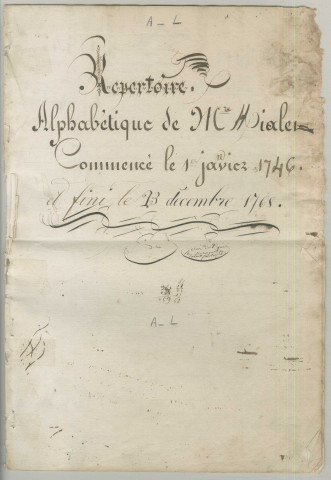 A - L
Repertoire.
Alphabétique de Mre
Commencé le 1er janvier 1746.
et fini le 23 décembre 1768.
A - L